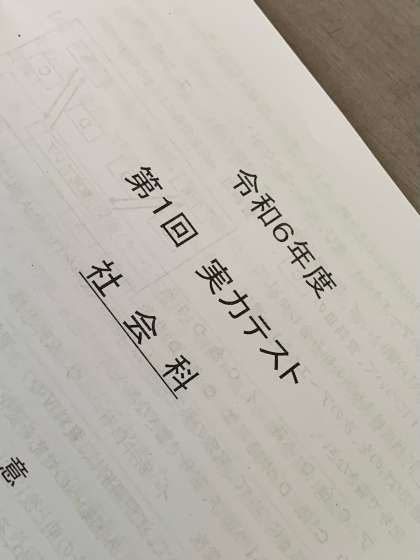 令和6年度
第1回 実力テスト
社会科
意